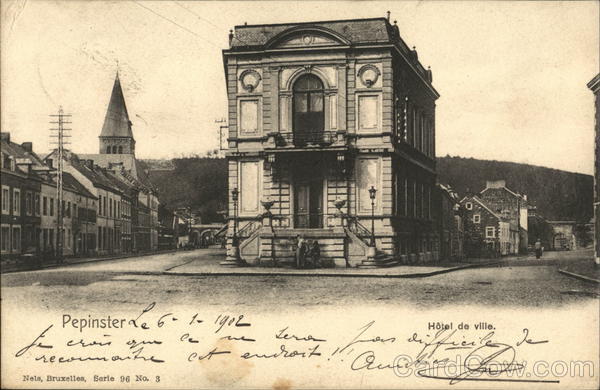 Pepinster Le 6-1-1902
Hôtel de ville.
Je crois que ce ne sera pas difficile de
reconnaitre cet endroit !!
Nels, Bruxelles, Serie 96 No. 3
CardCow.com